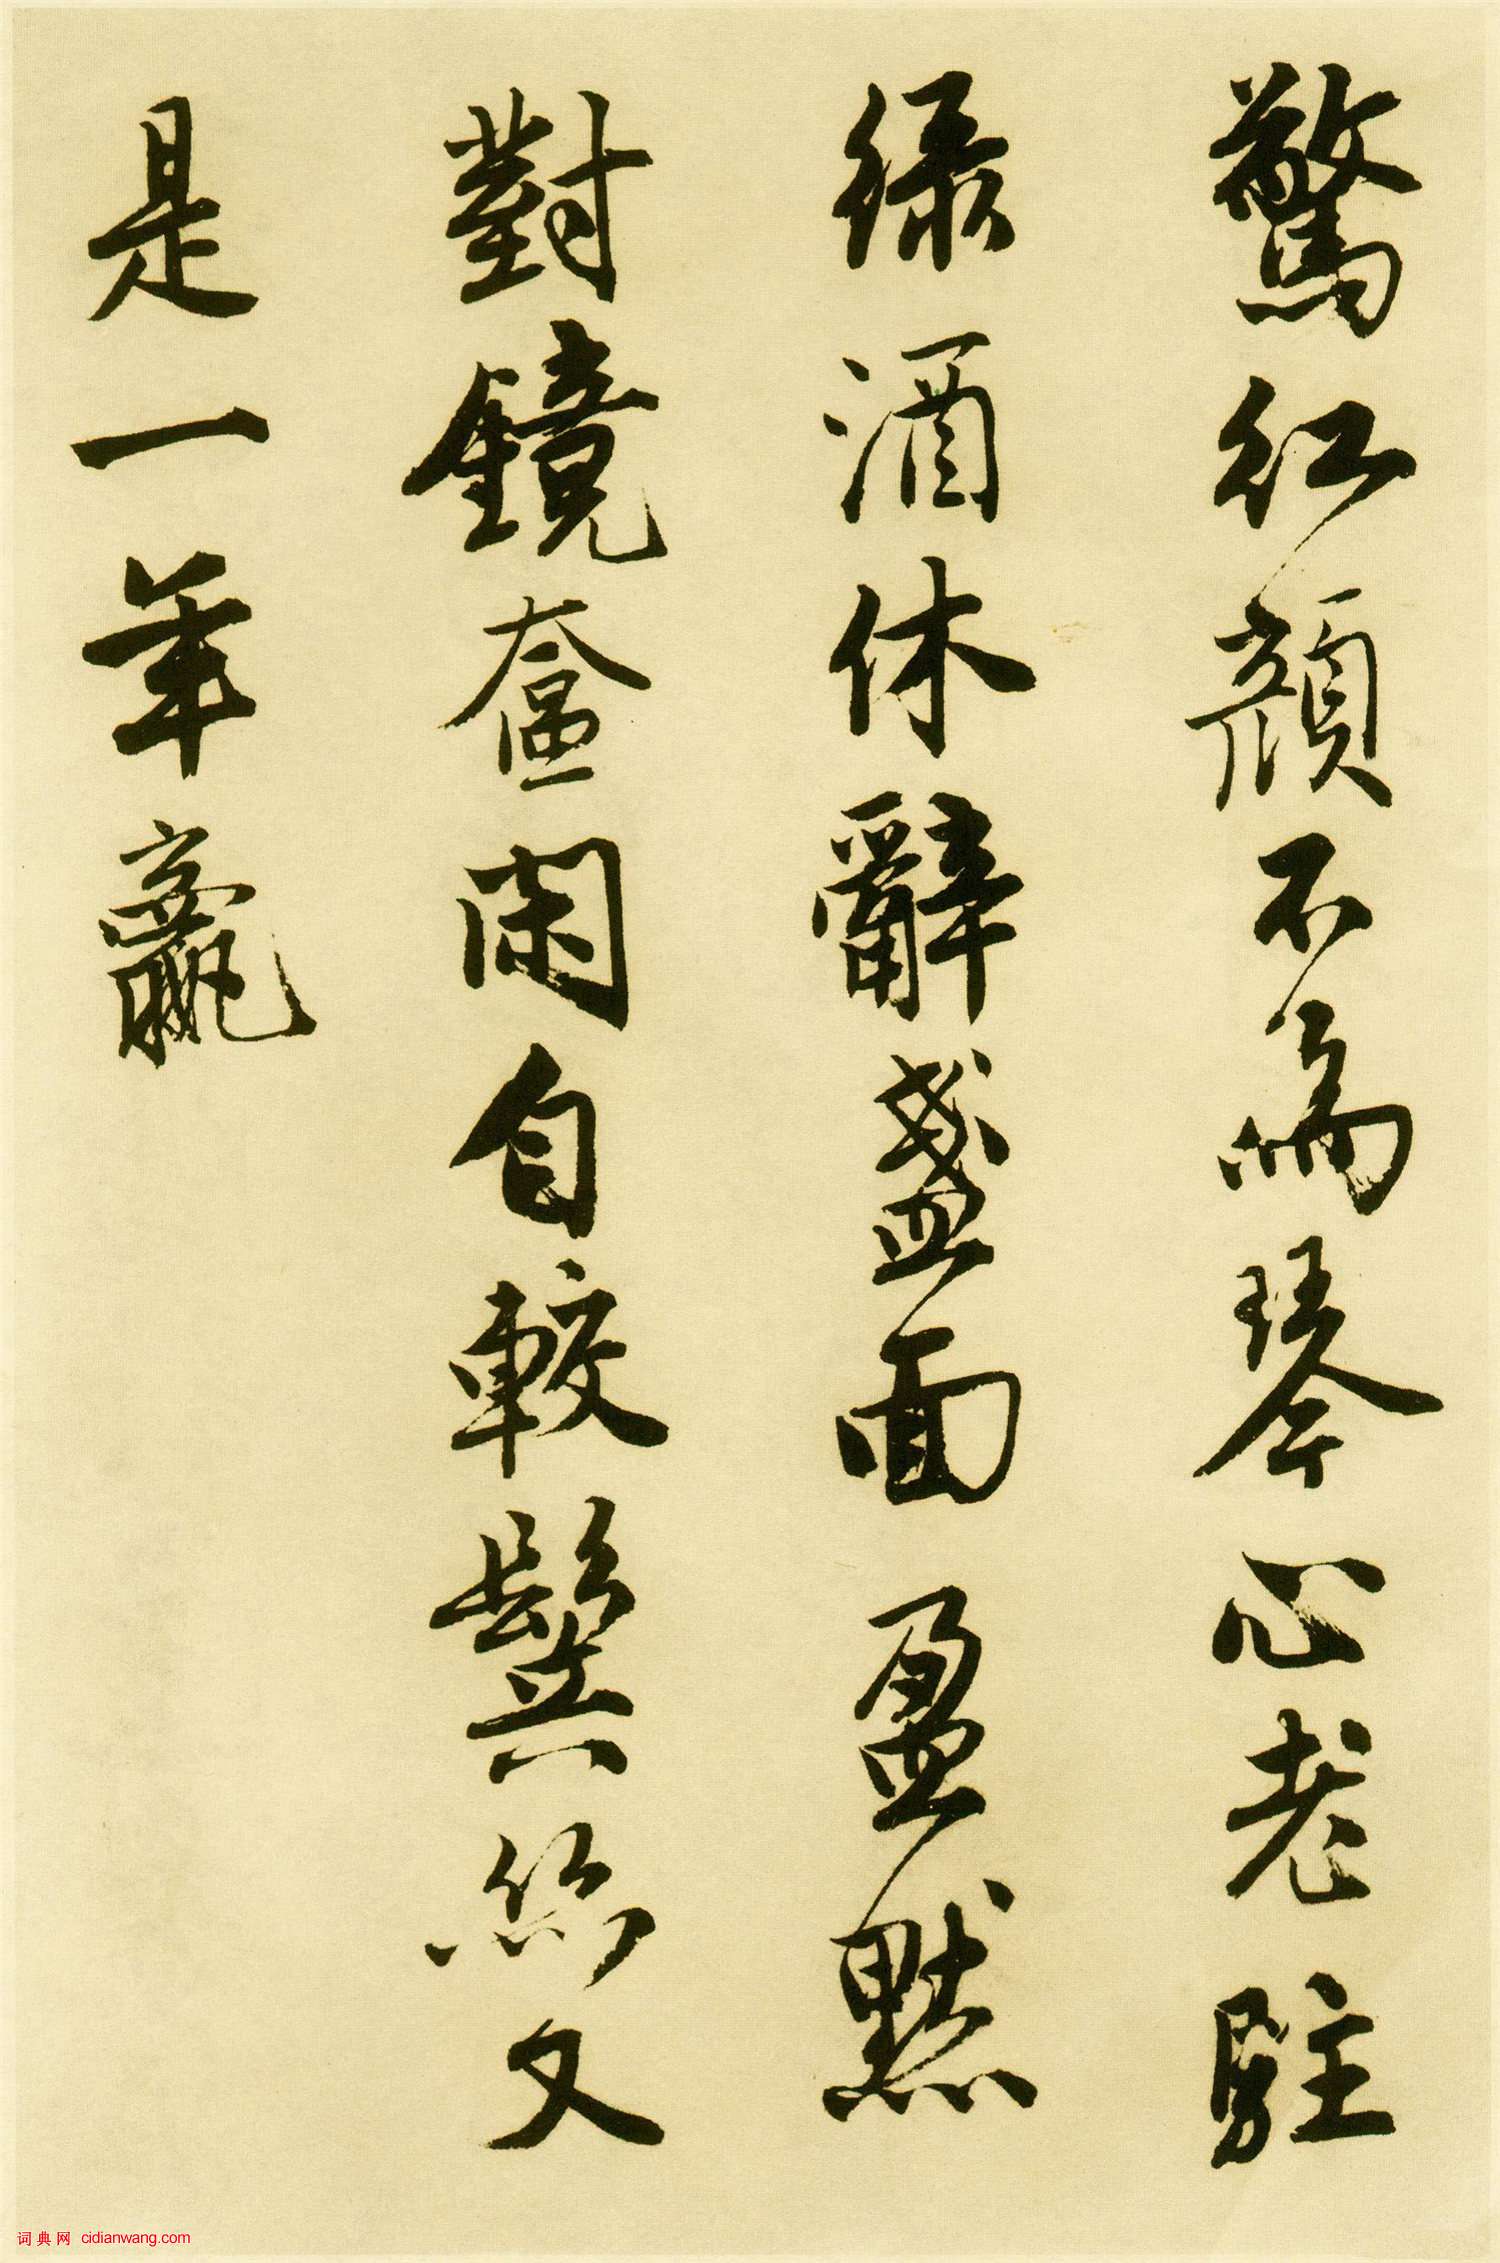 驚紅顏不為琴心老駐
緑酒休辭盞面盈默
對鏡奩閑自較鬢絲又
是一年贏
词典网 cidianwang.com